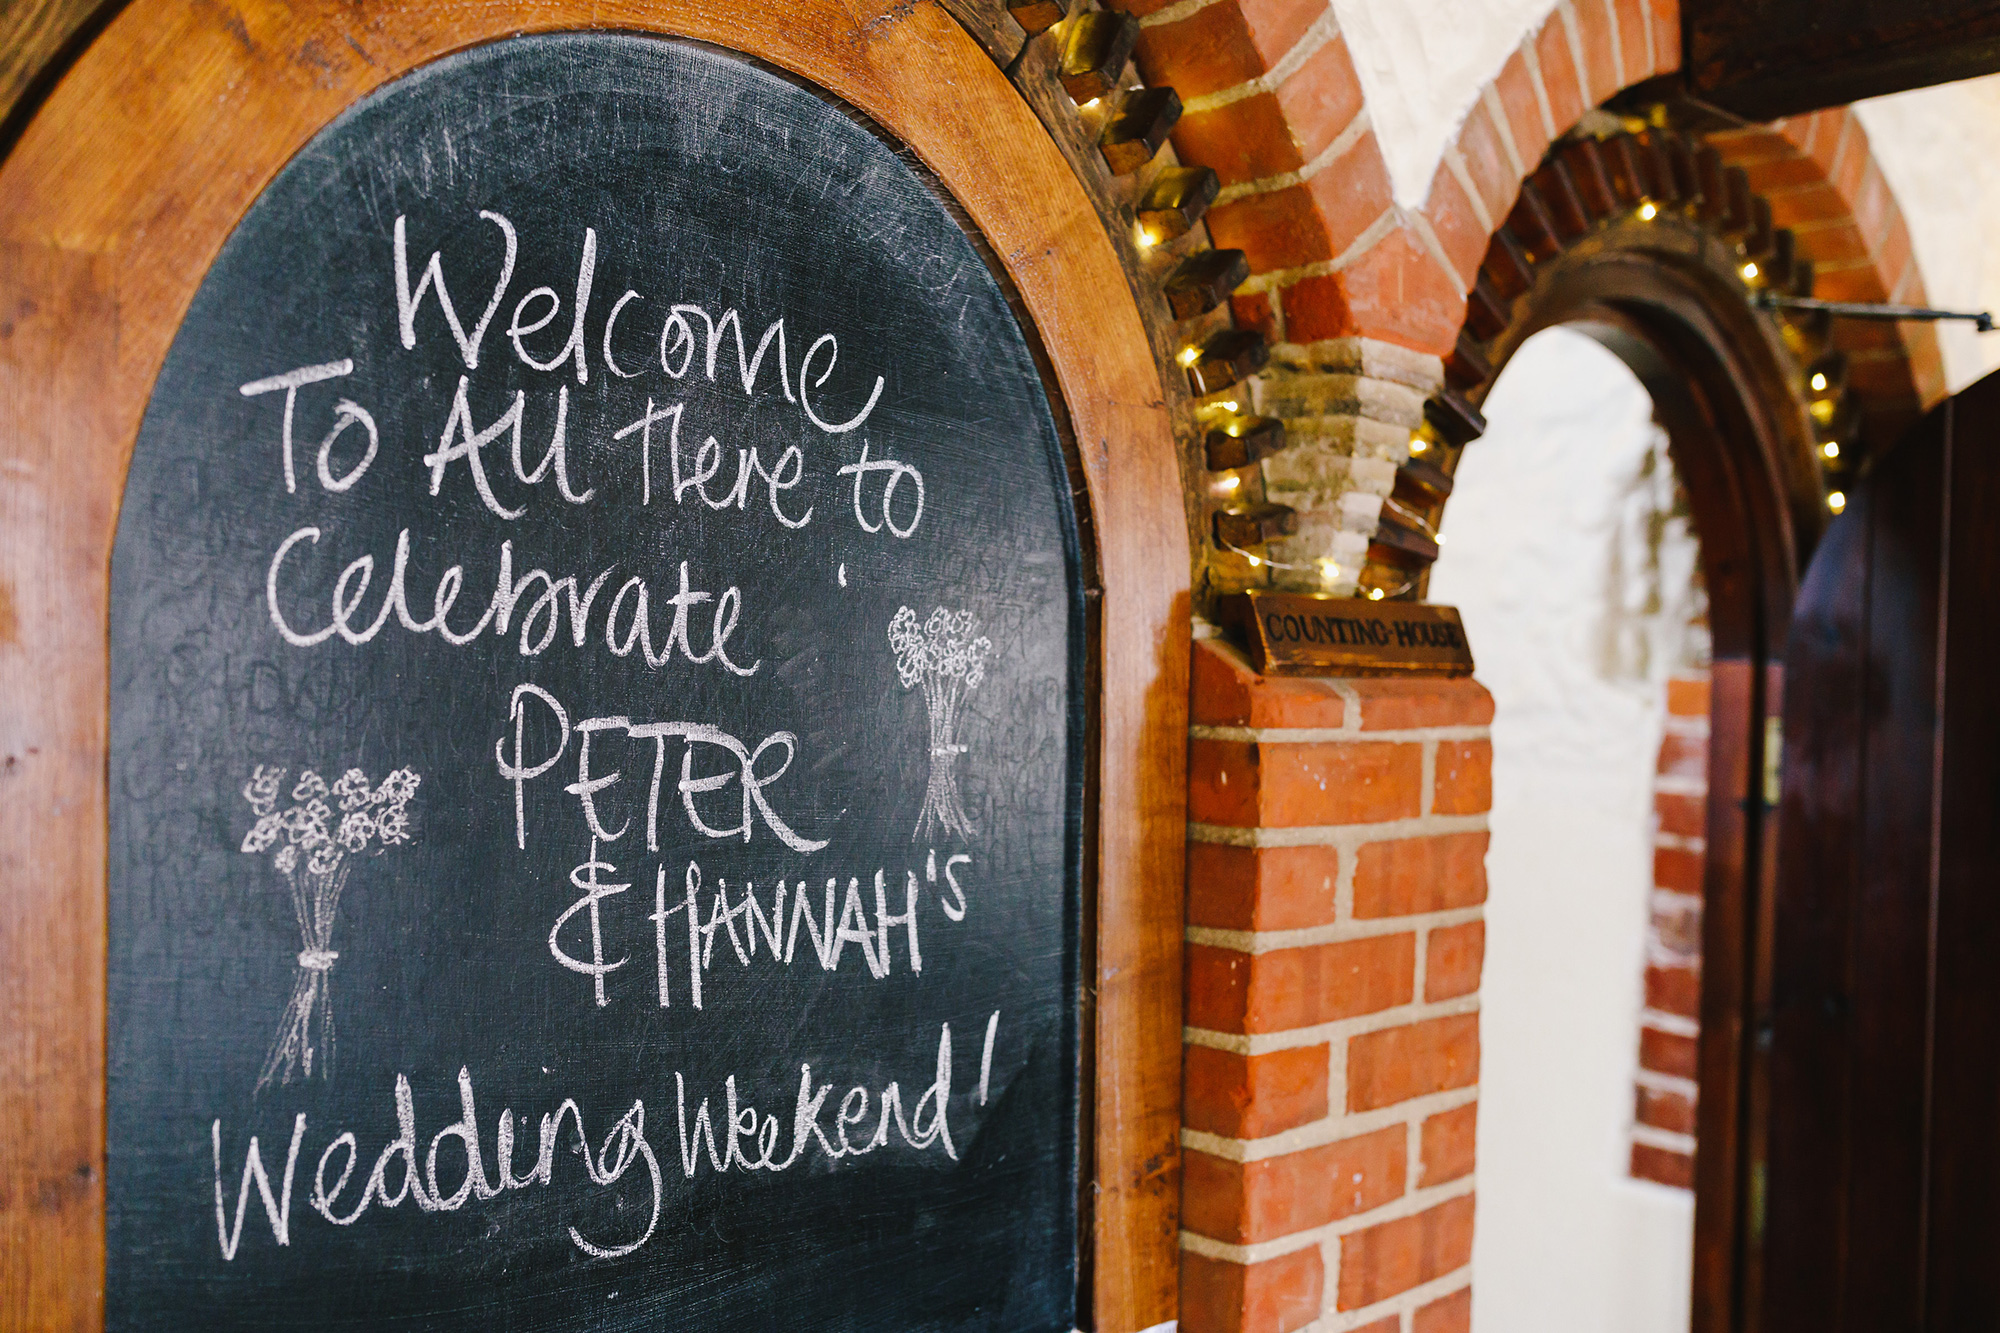 Welcome
To All Here to
Celebrate
PETER
& HANNAH's
Wedding Weekend!
COUNTING-HOUSE